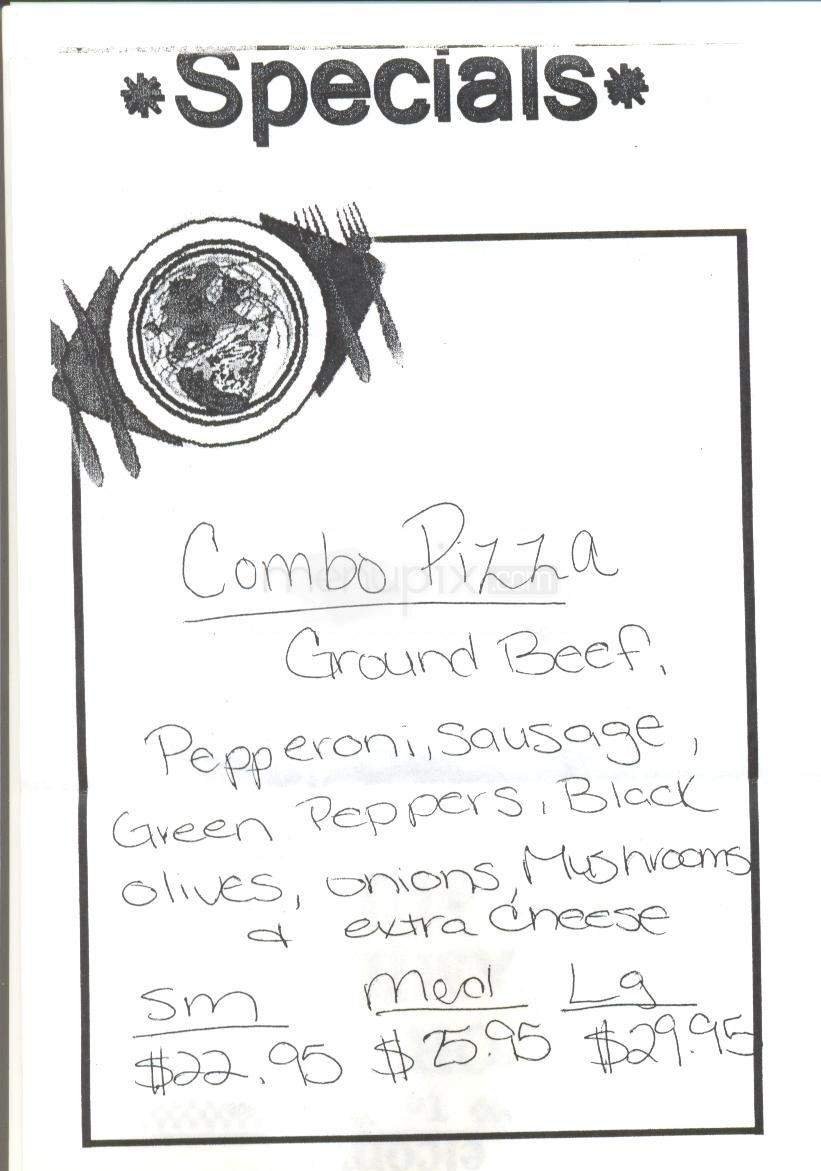 *Specials*
Combo Pizza
menupix.com
Ground Beef,
Pepperoni, Sausage,
Green Peppers, Black
olives, onions, Mushrooms
& extra cheese
Sm Med Lg
$22.95 $25.95 $29.95